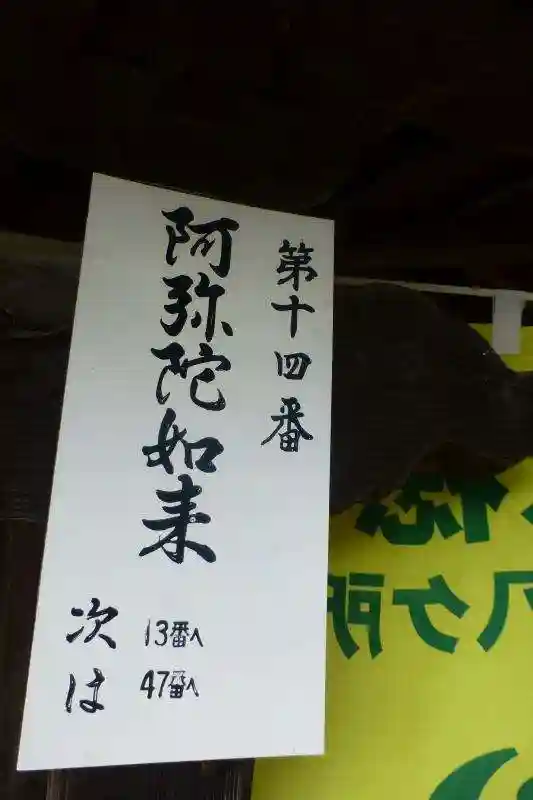 第十四番
阿弥陀如来
次は
13番へ
47番へ
八ケ所